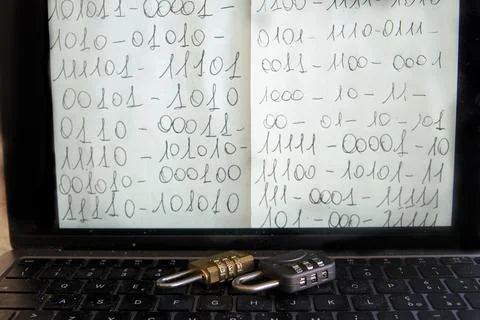 01011-00001-
1010-01010-
11101-11101
00101-1010
0110-00011-
11110-101010-
001010-000100
11110-101010
1100-1110-1-
0101-1110-0111-
0011-1100-0001
1000-10-11-
00-01-10-101
11111-00001-10
11100-10101-11
111-0001-11111
101-000-11111